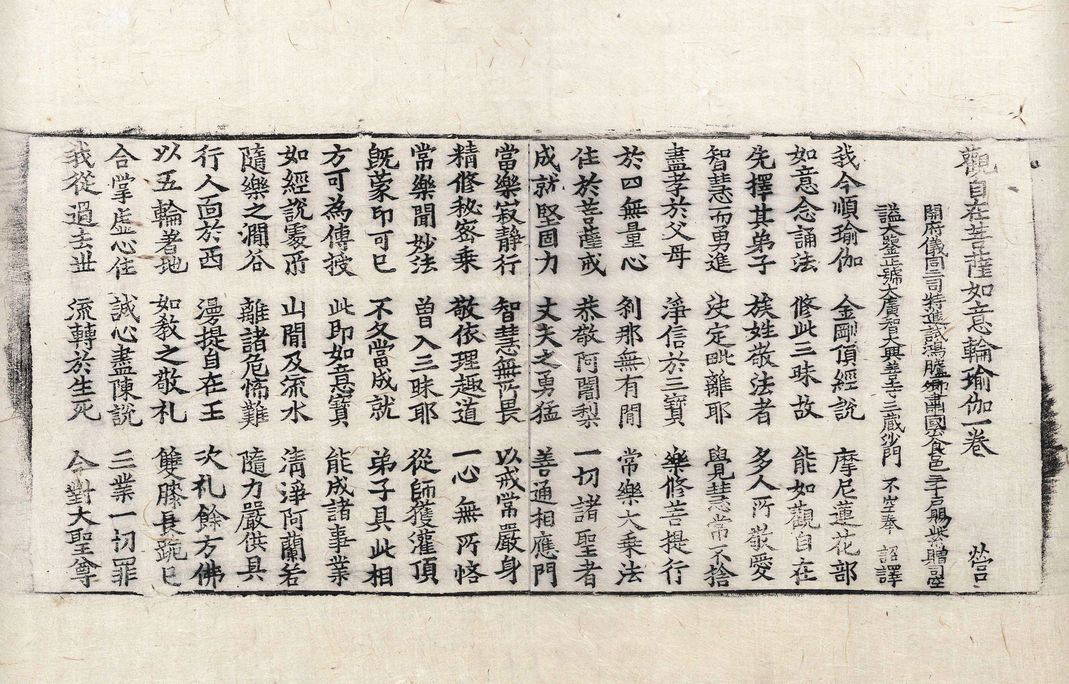 觀自在菩薩如意輪瑜伽一卷 營
開府儀同三司特進試鴻臚卿肅國公食邑三千户賜紫贈司空
謚大鑒正號大廣智大興善寺三藏沙門 不空奉 詔譯
我今順瑜伽 金剛頂經說 摩尼蓮花部
如意念誦法 修此三昧故 能如觀自在
先擇其弟子 族姓敬法者 多人所敬愛
智慧而勇進 決定毗離耶 覺慧常不捨
盡孝於父母 淨信於三寶 樂修菩提行
於四無量心 剎那無有間 常樂大乘法
住於菩薩戒 恭敬阿闍梨 一切諸聖者
成就堅固力 丈夫之勇猛 善通相應門
當樂寂静行 智慧無所畏 以戒常嚴身
精修秘密乘 敬依理趣道 一心無所悋
常樂聞妙法 曾入三昧耶 從師獲灌頂
既蒙印可已 不久當成就 弟子具此相
方可為傳授 此即如意寶 能成諸事業
如經說處所 山間及流水 清淨阿蘭若
隨樂之澗谷 離諸危怖難 隨力嚴供具
行人面於西 澷提自在王 次礼餘方佛
以五輪著地 如教之敬礼 雙膝長跪已
合掌虛心住 誠心盡陳說 三業一切罪
我從過去世 流轉於生死 今對大聖尊